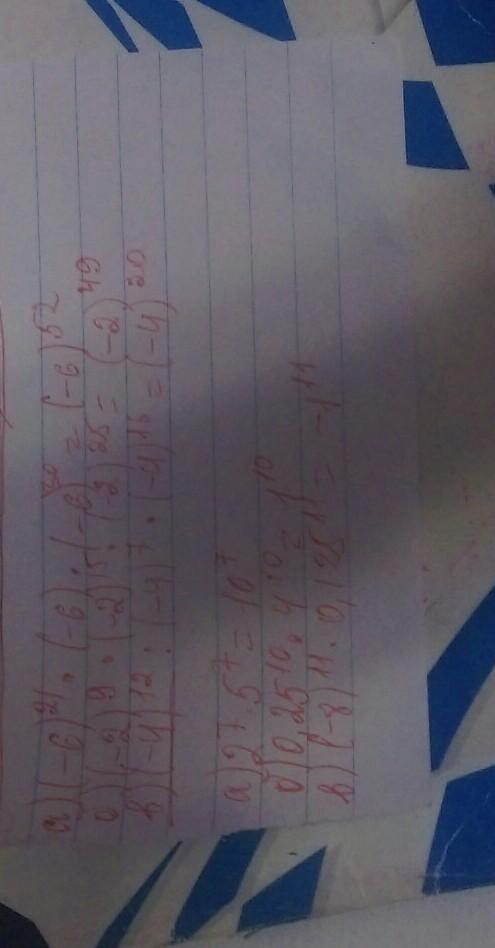 а) (-6)²¹ · (-6) · (-6)³⁰ = (-6)⁵²
б) (-2)⁹ · (-2)¹⁵ · (-2)²⁵ = (-2)⁴⁹
в) (-4)¹² : (-4)⁷ · (-4)¹⁵ = (-4)²⁰
а) 2⁷ · 5⁷ = 10⁷
б) 0,25¹⁰ · 4¹⁰ = 1¹⁰
в) (-8)¹¹ · 0,125¹¹ = -1¹¹